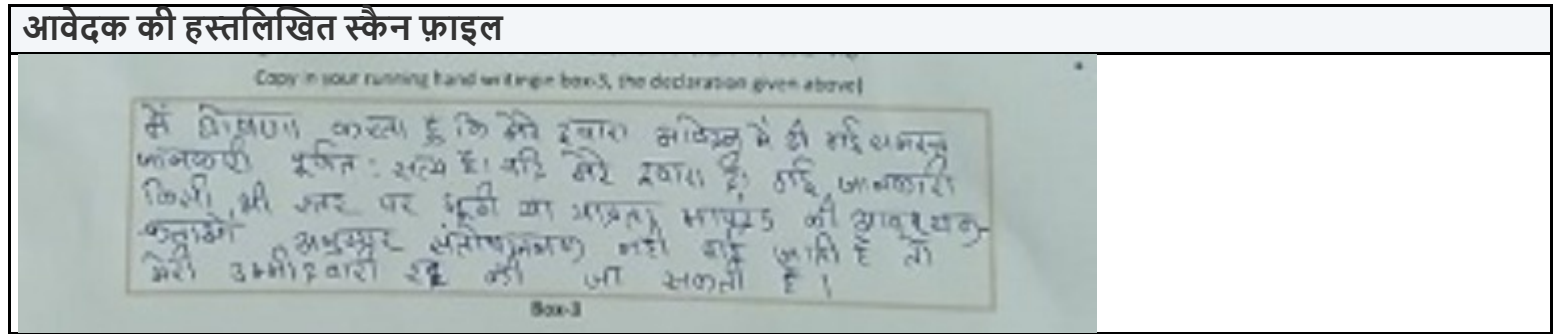 आवेदक की हस्तलिखित स्कैन फ़ाइल
Copy in your running hand writing in box-3, the declaration given above]
में घोषणा करता हूँ कि मेरे द्वारा आवेदन में दी गई समस्त
जानकारी पूर्णत: सत्य है। यदि मेरे द्वारा दी गई जानकारी
किसी भी स्तर पर झूठी या पात्रता मापदंड की आवश्यक-
कताओ अनुसार संतोषजनक नही पाई जाती है तो
मेरी उम्मीदवारी रद्द की जा सकती है।
Box-3